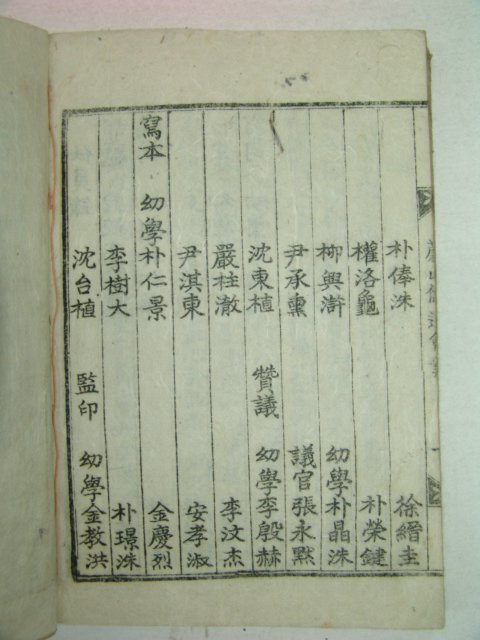 朴俸洙 徐縉圭
權洛龜 朴榮鍵
柳興滸 幼學朴晶洙
尹承熏 議官張永默
沈東植 贊議 幼學李殷赫
嚴柱澈 李汶杰
尹淇東 安孝淑
寫本 幼學朴仁景 金慶烈
李樹大 朴璟洙
沈台植 監印 幼學金教洪